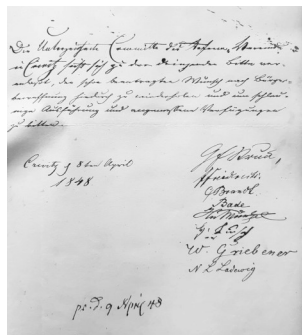 Die Unterzeichnete Committe des Reform Vereins
in Crivitz sieht sich zu der dringenden Bitte ver-
anlaßt, den schon beantragten Wunsch nach Bürger-
bewaffnung hiedurch zu wiederholen und um schleu-
nige Ausführung und Verfügungen
zu bitten.
Crivitz d 8ten April
1848
Friederichs
Brandt
Bade
W. Griebener
N L Ladewig
pr. d. 9 April 48